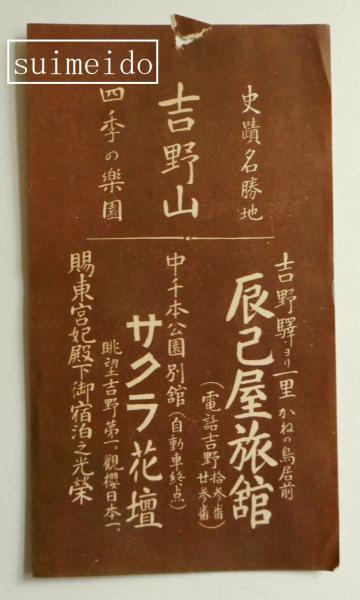 suimeido
史蹟名勝地
吉野山
四季の樂園
吉野驛ヨリ一里かねの鳥居前
辰巳屋旅舘
(電話吉野拾参番廿参番)
中千本公園別舘(自動車終点)
サクラ花壇
眺望吉野第一觀櫻日本一、
賜東宮妃殿下御宿泊之光榮